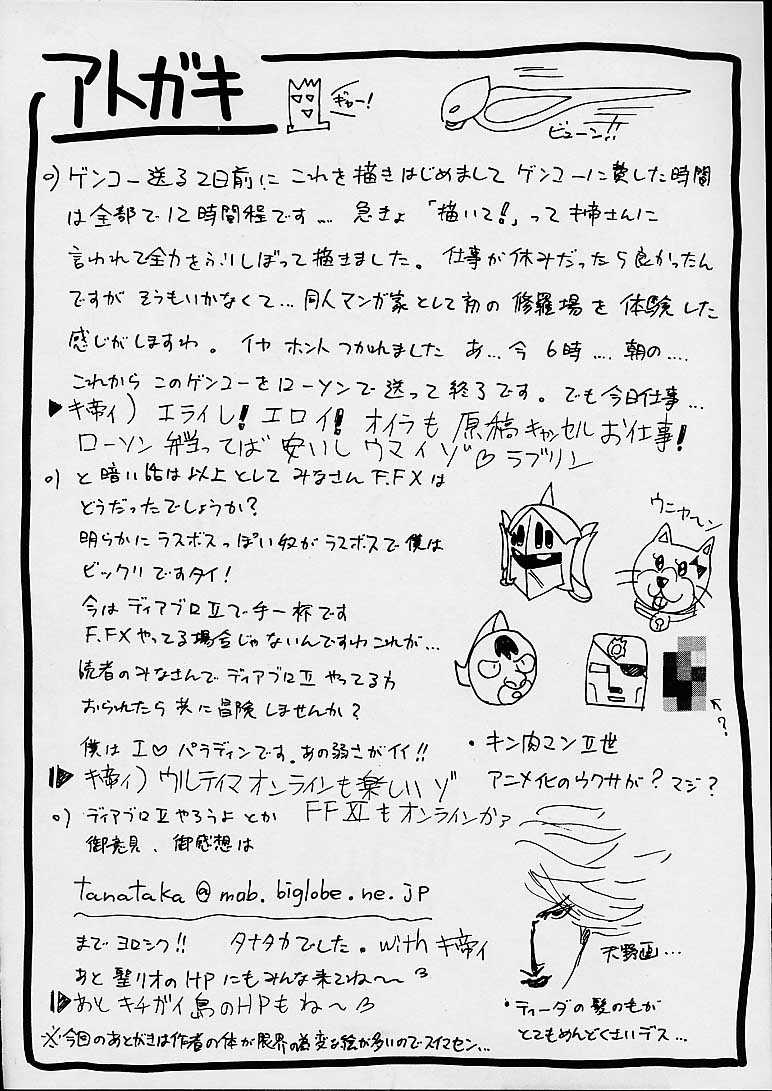 アトガキ
ギャー!
ビューン!!
○) ゲンコー送る2日前に これを描きはじめまして ゲンコーに費した時間
は全部で12時間程です… 急きょ 「描いて!」って キ帝さんに
言われて全力をふりしぼって描きました。 仕事が休みだったら良かったん
ですが そうもいかなくて… 同人マンガ家として初の 修羅場を 体験した
感じがしますわ。 イヤ ホント つかれました あ… 今 6時 … 朝の…
これから このゲンコーをローソンで送って終了です。 でも今日仕事…
▶キ帝ィ) エライし! エロイ! オイラも 原稿キャンセル お仕事!
ローソン弁当ってば 安いし ウマイゾ♡ ラブリン
○) と 暗い話は以上として みなさん F.FXは
どうだったでしょうか?
明らかに ラスボスっぽい奴が ラスボスで 僕は
ビックリですタイ!
今は ディアブロⅡで手一杯です
F.FXやってる場合じゃないんですわ これが…
読者のみなさんで ディアブロⅡ やってる方
おられたら 共に冒険しませんか?
僕は I♡パラディンです。あの弱さがイイ!!
▶キ帝ィ) ウルティマオンラインも楽しいゾ
○) ディアブロⅡやろうよ とか FFXIもオンラインかァ
御意見、御感想は
tanataka@mob.biglobe.ne.jp
まで ヨロシク!! タナタカでした。 with キ帝ィ
あと 聖リオのHPにもみんな来てね~
▶あと キチガイ島のHPもね~
※今回のあとがきは作者の体が限界の為変な絵が多いのでスイマセン…
ウニャ~ン
?
・キン肉マンⅡ世
アニメ化のウワサが? マジ?
天野画…
・ティーダの髪のもが
とてもめんどくさいデス…